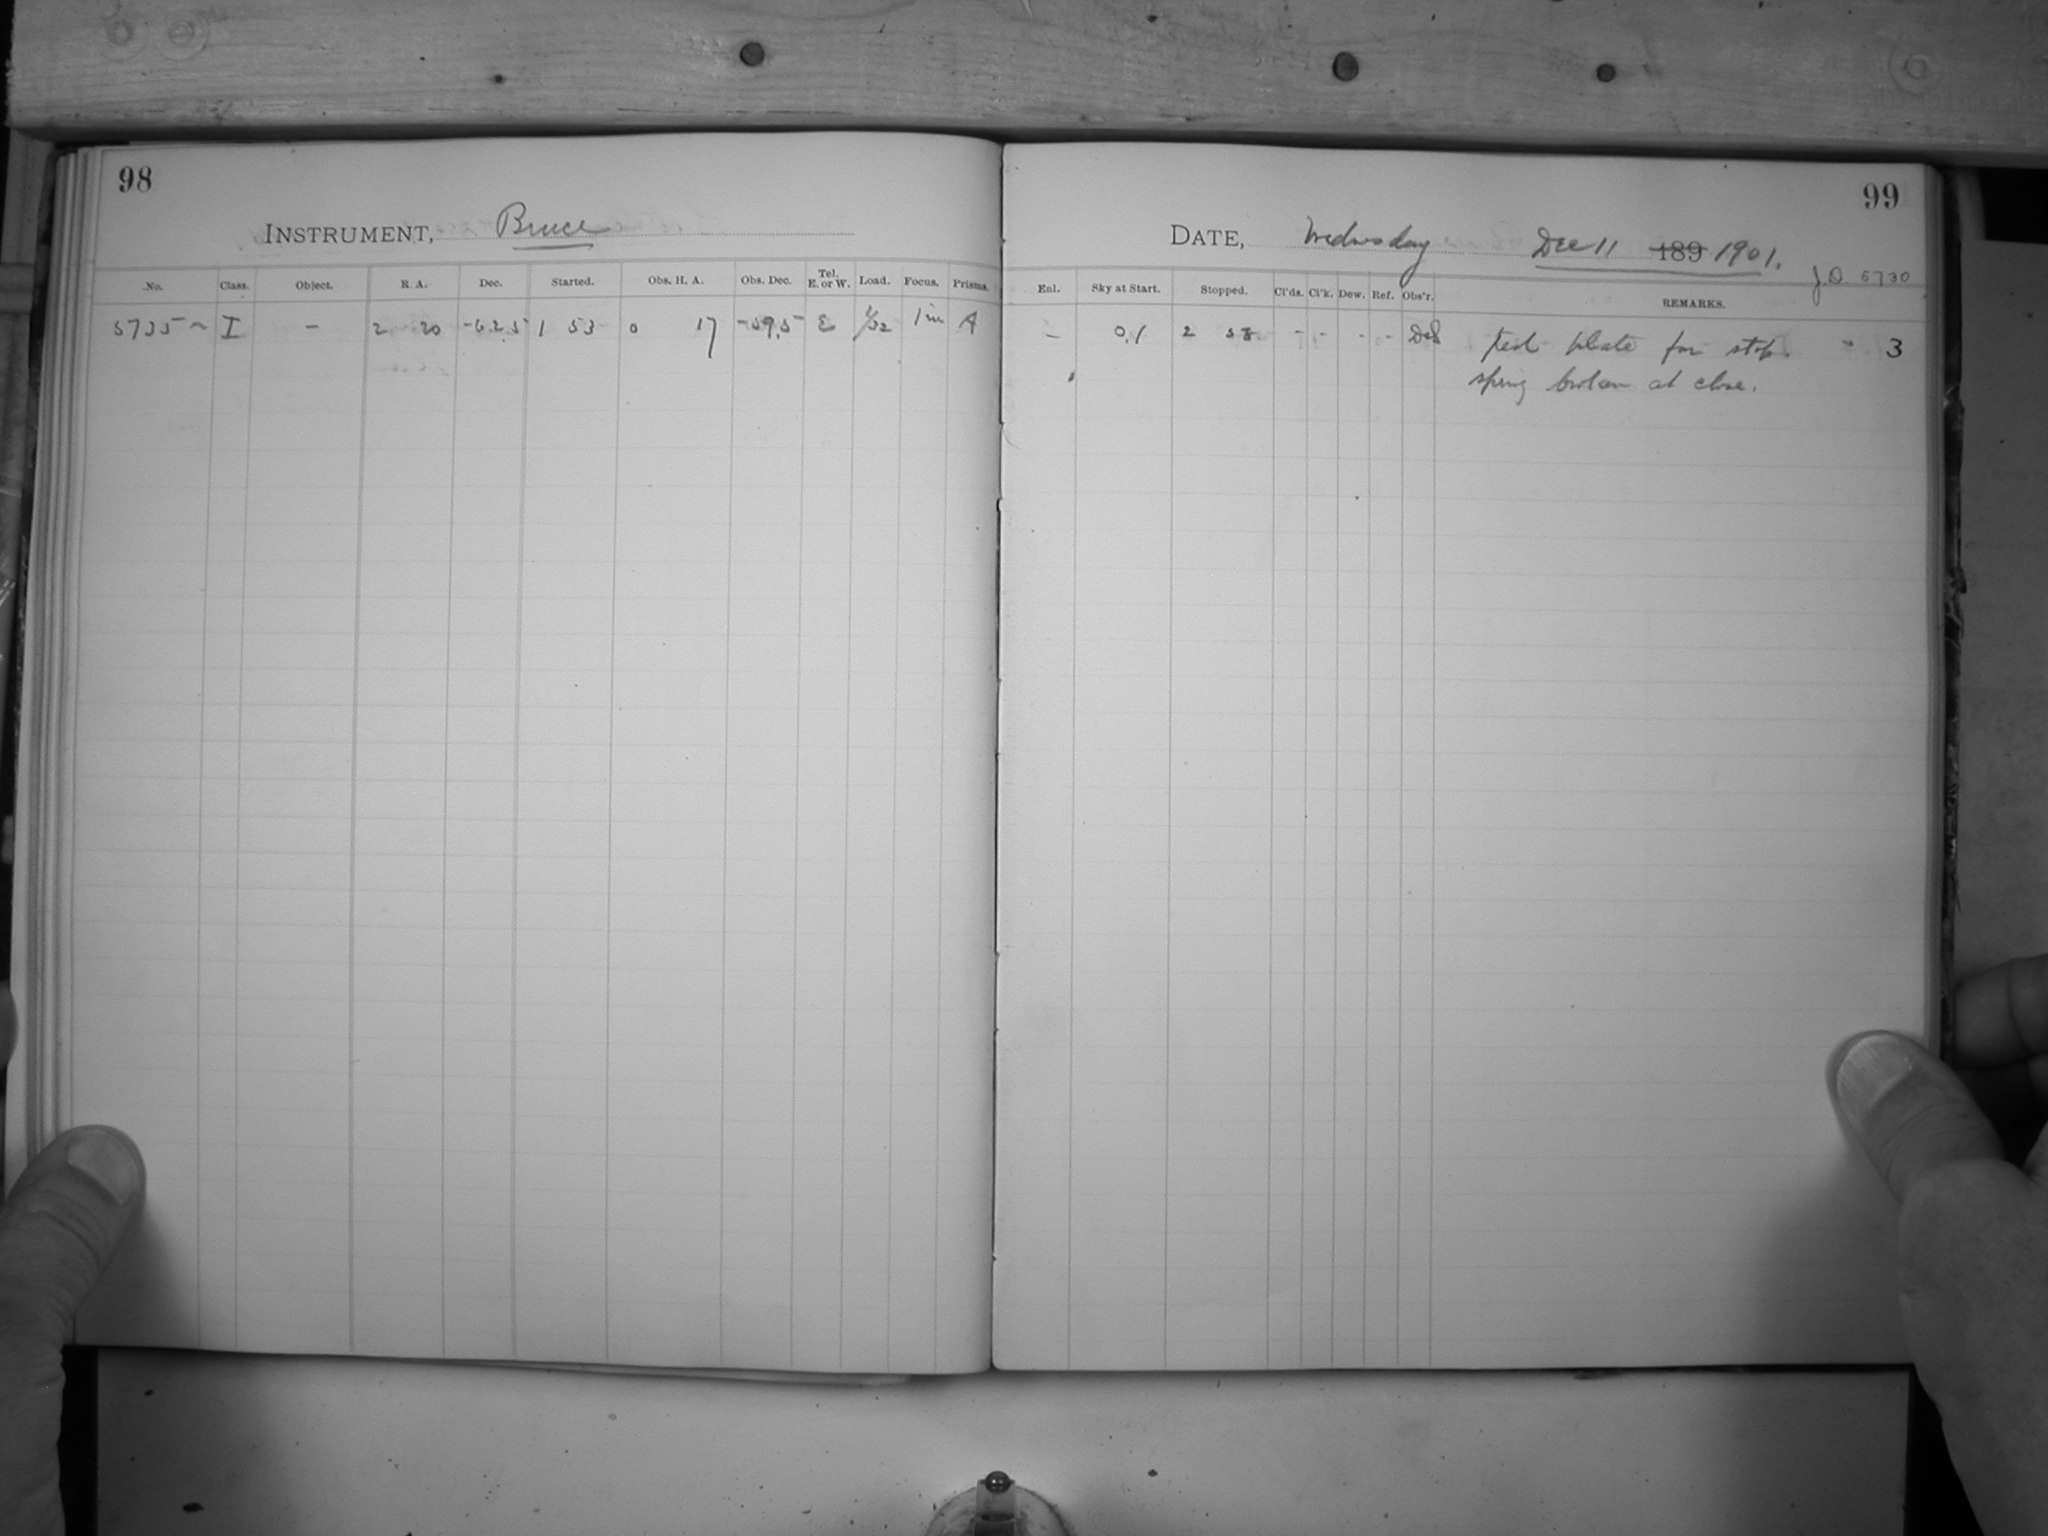 98
INSTRUMENT, Bruce
No. Class. Object. R. A. Dec. Started. Obs. H. A. Obs. Dec. Tel. E. or W. Load. Focus. Prisms.
5735 ~ I - 2 20 -62.5 1 53 0 17 -59.5 E 1/32 1 in A
99
DATE, Wednesday Dec 11 189 1901.
J.D. 5730
Enl. Sky at Start. Stopped. Cl'ds. Cl'k. Dew. Ref. Obs'r. REMARKS.
- 0.1 2 58 - - - - test plate for stop. " 3
spring broken at close.